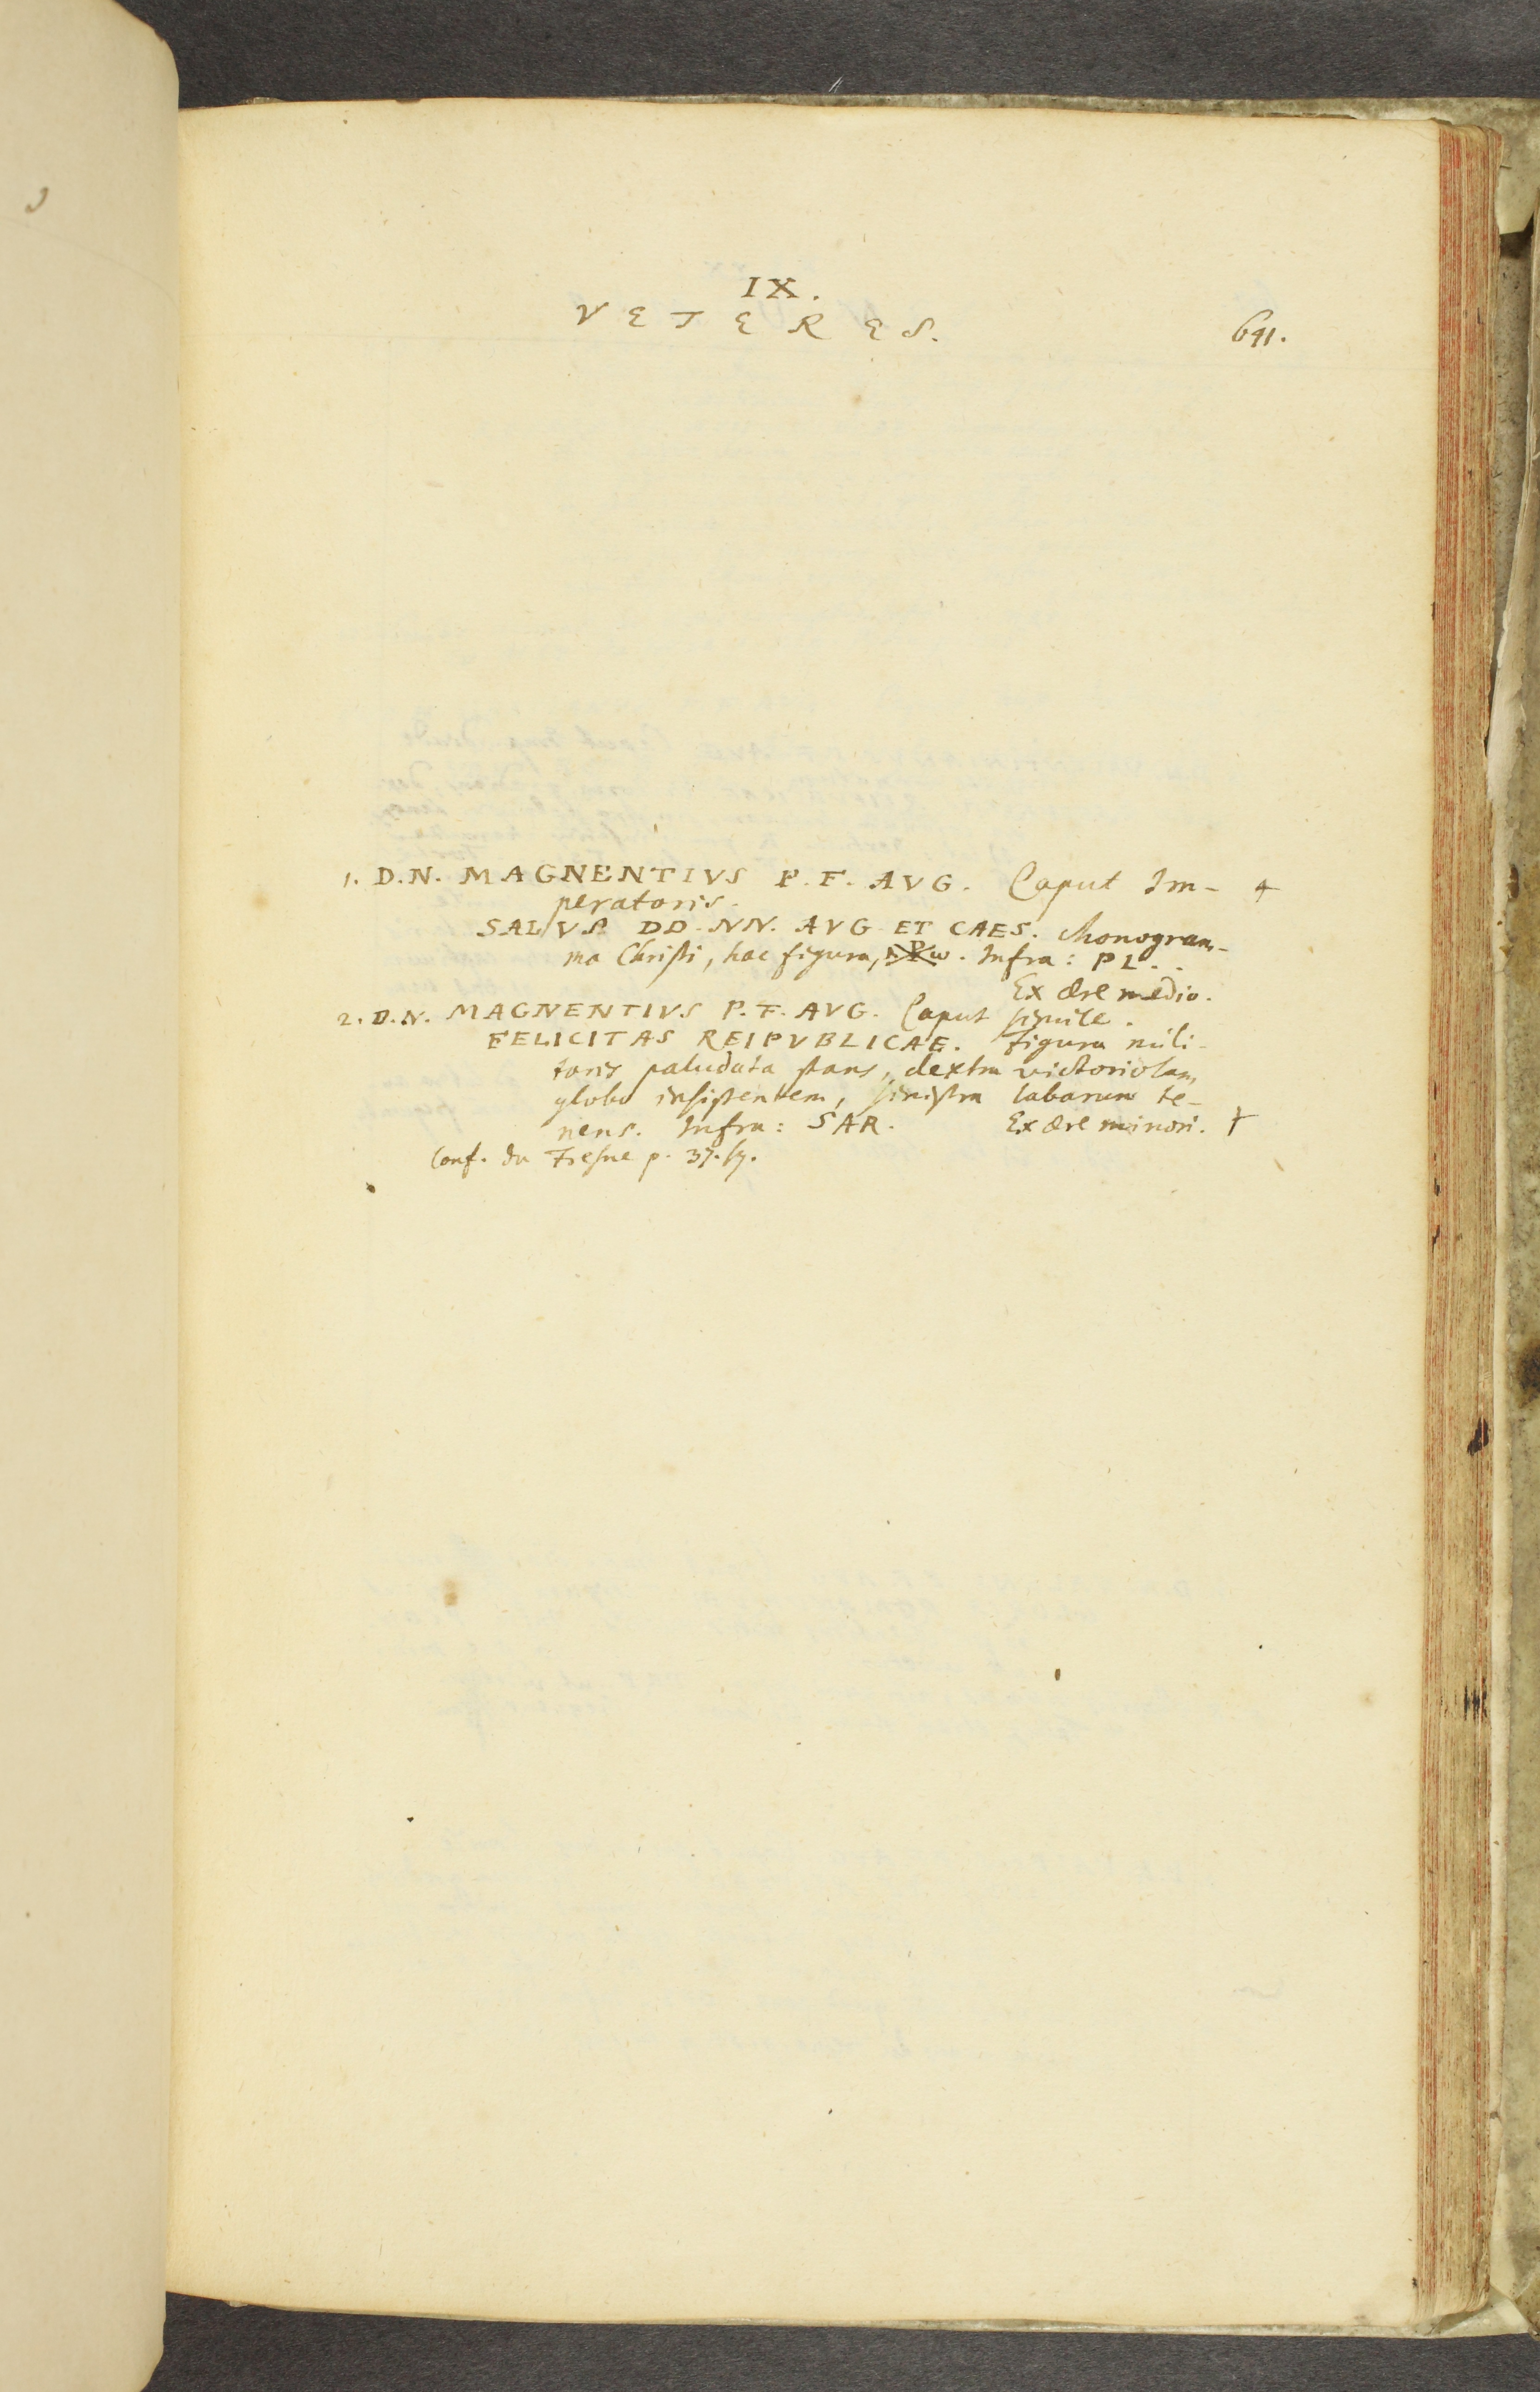 IX.
VETERES.
641.
1. D.N. MAGNENTIVS P.F. AVG. Caput Im- +
peratoris.
SALVS DD. NN. AVG ET CAES. Monogram-
ma Christi, hac figura, A☧ω. Infra: PL.
Ex ære medio.
2. D.N. MAGNENTIVS P.F. AVG. Caput simile.
FELICITAS REIPVBLICAE. Figura mili-
taris paludata stans, dextra victoriolam
globo insistentem, sinistra labarum te-
nens. Infra: SAR. Ex ære minori. +
Conf. du Fresne p. 37.